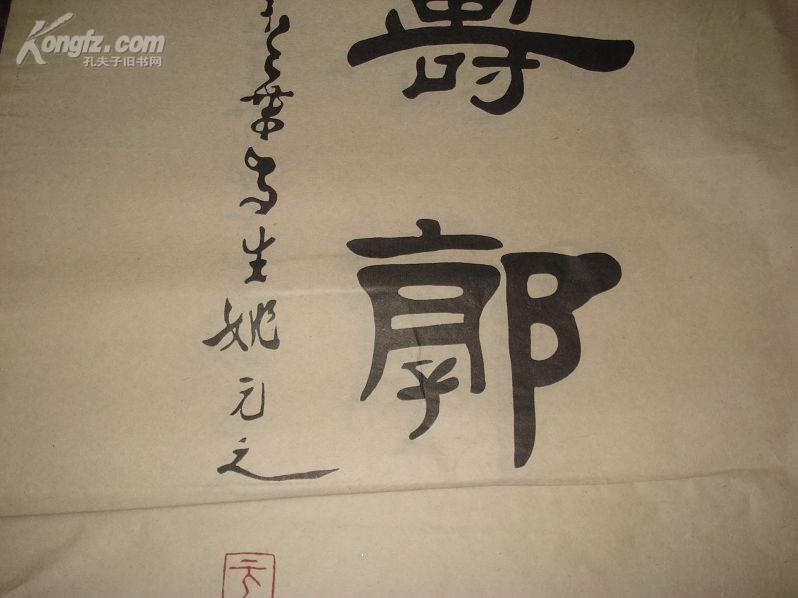 Kongfz.com
孔夫子旧书网
壽郭
生姚元之
元